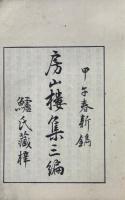 甲午春新鐫
房山樓集三編
鱸氏藏梓